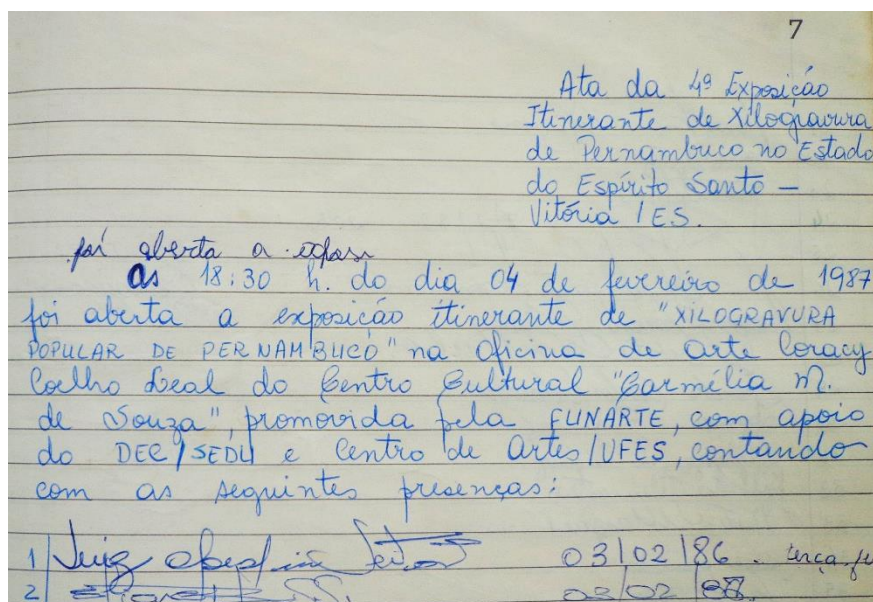 7
Ata da 4ª Exposição
Itinerante de Xilogravura
de Pernambuco no Estado
do Espírito Santo —
Vitória / ES.
foi aberta a
as 18:30 h. do dia 04 de fevereiro de 1987
foi aberta a exposição itinerante de "XILOGRAVURA
POPULAR DE PERNAMBUCO" na Oficina de Arte Coracy
Coelho Leal do Centro Cultural "Carmélia M.
de Souza", promovida pela FUNARTE, com apoio
do DEC/SEDU e Centro de Artes/UFES, contando
com as seguintes presenças:
1 Luiz 03/02/86
2 03/02